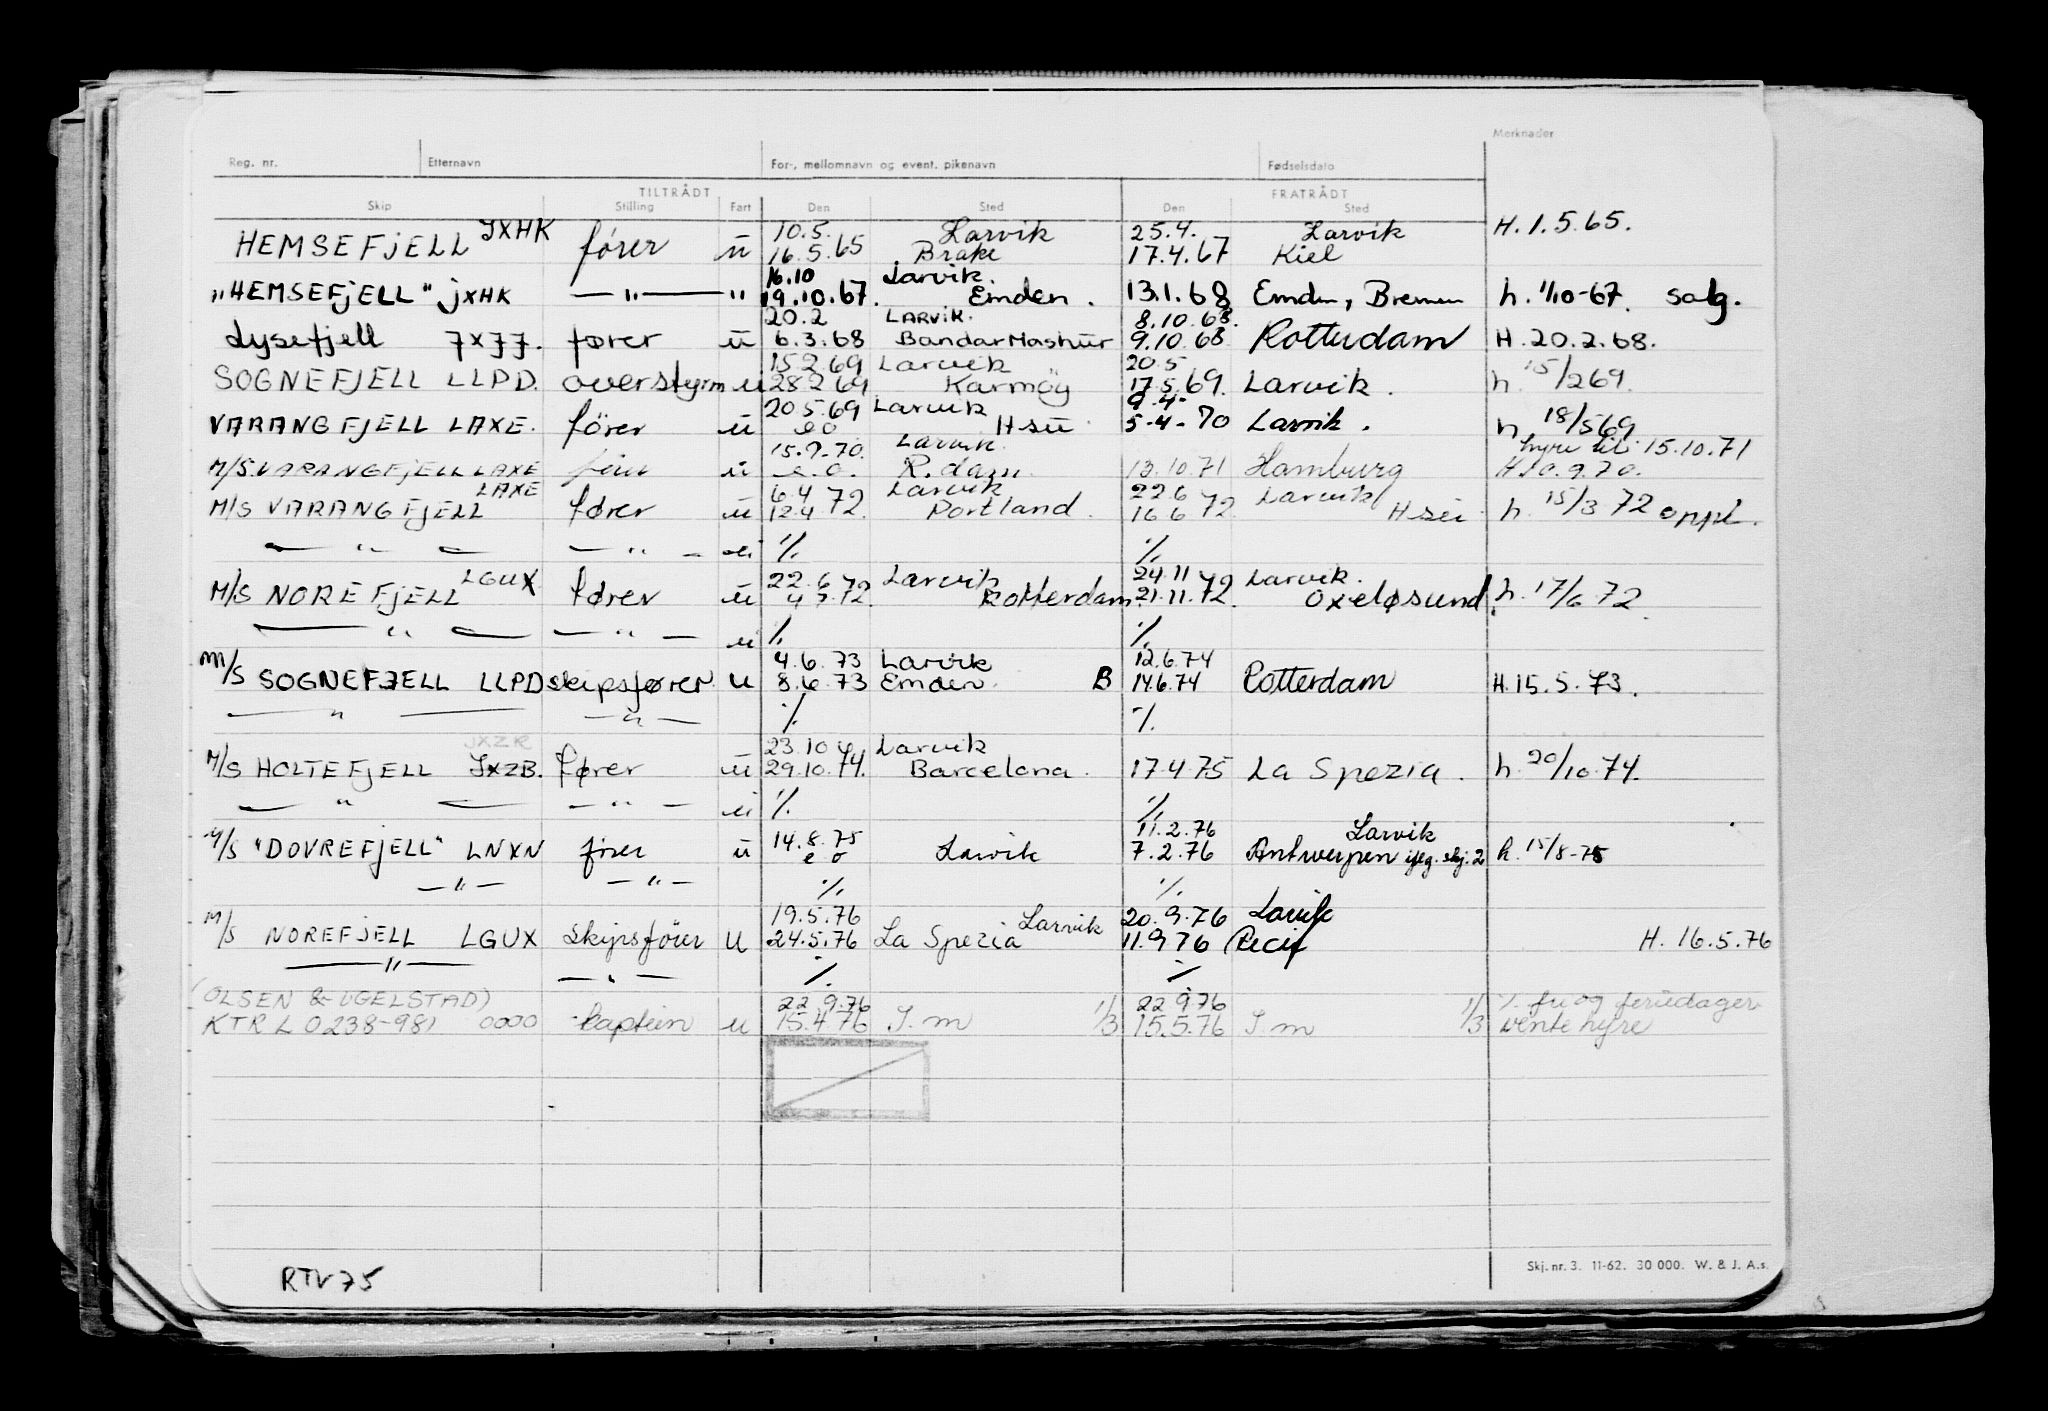 Merknader
Reg. nr. Etternavn For-, mellomnavn og event. pikenavn Fødselsdato
TILTRÅDT FRATRÅDT
Skip Stilling Fart Den Sted Den Sted
JXHK 10.5. Larvik 25.4. Larvik H. 1.5.65.
HEMSEFJELL fører u 16.5.65 Brake 17.4.67 Kiel
16.10 Larvik.
"HEMSEFJELL" JXHK — " — " 19.10.67. Emden. 13.1.68 Emden, Bremen h. 1/10-67. salg.
20.2 LARVIK. 8.10.68.
Lysefjell JXJJ. fører u 6.3.68 Bandar Mashur 9.10.68 Rotterdam H. 20.2.68.
15.2.69 Larvik 20.5
SOGNEFJELL LLPD. overstyrm u 28.2.69 Karmøy 17.5.69. Larvik. h. 15/2 69.
20.5.69 Larvik 9.4-
VARANGFJELL LAXE. fører u eo Hsu 5-4-70 Larvik. h 18/5 69
15.9.70. Larvik. hyre til 15.10.71
M/S. VARANGFJELL LAXE fører u e.o. R.dam. 13.10.71 Hamburg H 10.9.70.
LAXE 6.4 Larvik 22.6 Larvik
M/S VARANGFJELL fører u 12.4 72. Portland. 16.6 72. H su h. 15/3 72 oppl.
— " — — " — u % %
LGUX 22.6 Larvik 24.11 Larvik.
M/S NOREFJELL fører u 4.7.72. Rotterdam 21.11.72. Oxeløsund. h. 17/6 72.
— " — — " — u % %
4.6.73 Larvik 12.6.74
M/S SOGNEFJELL LLPD skipsfører u 8.6.73 Emden. B 14.6.74 Rotterdam H. 15.5.73.
— " — — " — % %
JXZR 23.10 Larvik
M/S HOLTEFJELL JXZB. fører u 29.10.74. Barcelona. 17.4.75 La Spezia. h. 20/10.74.
— " — — " — u % %
14.8.75 11.2.76 Larvik
M/S "DOVREFJELL" LNXN fører u e o Larvik 7.2.76 Antwerpen skj. 2 h. 15/8-75
— " — — " — % %
19.5.76 Larvik 20.9.76 Larvik
M/S NOREFJELL LGUX Skipsfører u 24.5.76 La Spezia 11.9.76 H. 16.5.76
— " — — " — % %
(OLSEN & UGELSTAD) 22.9.76 1/3 22.9.76 1/3 % fri og feriedager
KTR L 0238-981 0000 kaptein u 15.4.76 I.m 15.5.76 I.m vente hyre
RTV75
Skj. nr. 3. 11-62. 30 000. W. & J. A.s.